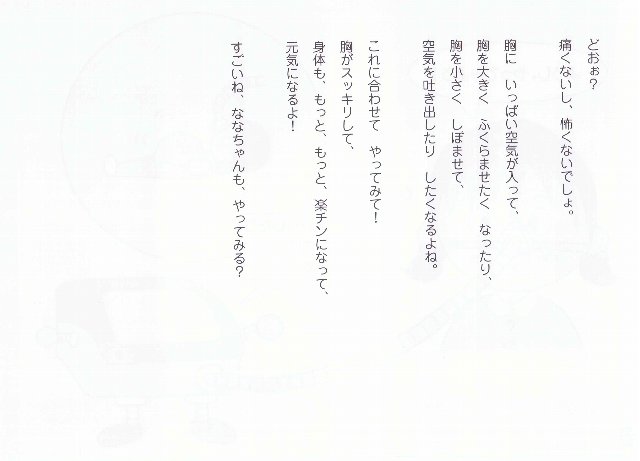 どおぉ？
痛くないし、怖くないでしょ。
胸に　いっぱい空気が入って、
胸を大きく　ふくらませたく　なったり、
胸を小さく　しぼませて、
空気を吐き出したり　したくなるよね。
これに合わせて　やってみて！
胸がスッキリして、
身体も、もっと、もっと、楽チンになって、
元気になるよ！
すごいね、ななちゃんも、やってみる？